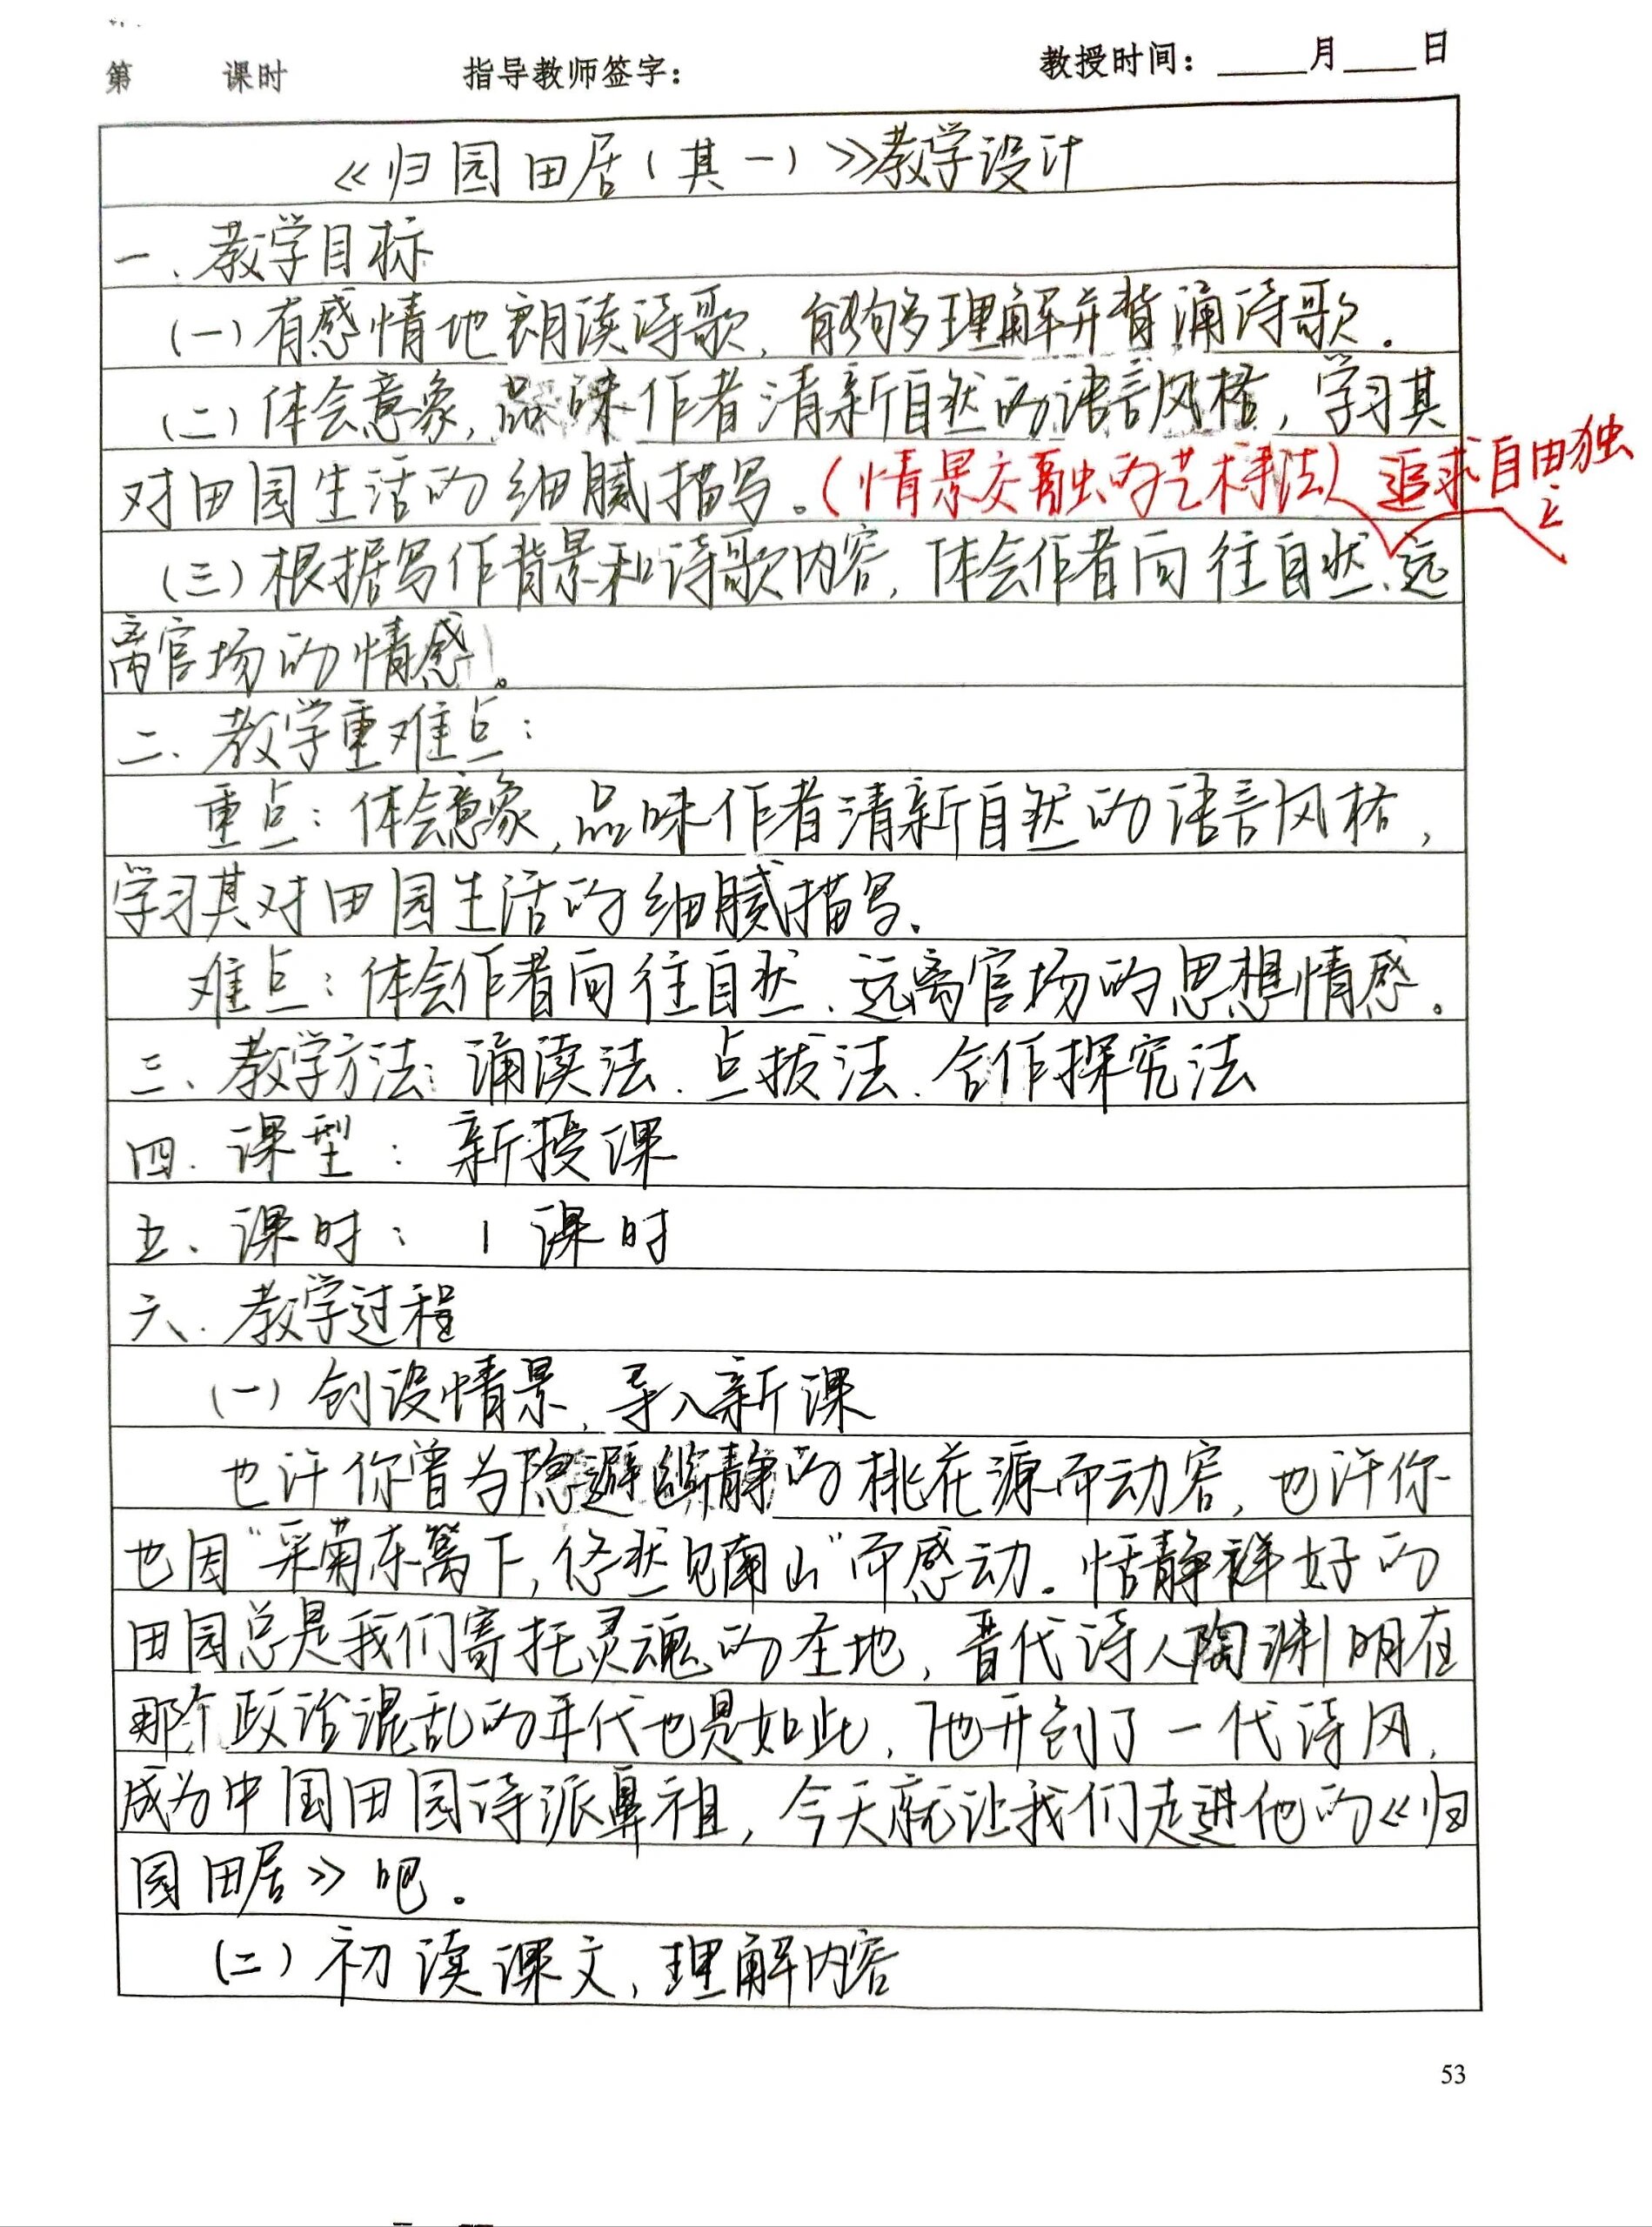 第 课时 指导教师签字： 教授时间：_____月____日
《归园田居(其一)》教学设计
一、教学目标
(一)有感情地朗读诗歌，能够理解并背诵诗歌。
(二)体会意象，品味作者清新自然的语言风格，学习其
对田园生活的细腻描写。(情景交融的艺术手法) 追求自由独
立
(三)根据写作背景和诗歌内容，体会作者向往自然、远
离官场的情感。
二、教学重难点：
重点：体会意象，品味作者清新自然的语言风格，
学习其对田园生活的细腻描写。
难点：体会作者向往自然、远离官场的思想情感。
三、教学方法：诵读法、点拨法、合作探究法
四、课型：新授课
五、课时：1课时
六、教学过程
(一)创设情景，导入新课
也许你曾为隐避幽静的桃花源而动容，也许你
也因“采菊东篱下，悠然见南山”而感动。恬静祥好的
田园总是我们寄托灵魂的圣地，晋代诗人陶渊明在
那个政治混乱的年代也是如此，他开创了一代诗风，
成为中国田园诗派鼻祖，今天就让我们走进他的《归
园田居》吧。
(二)初读课文，理解内容
53